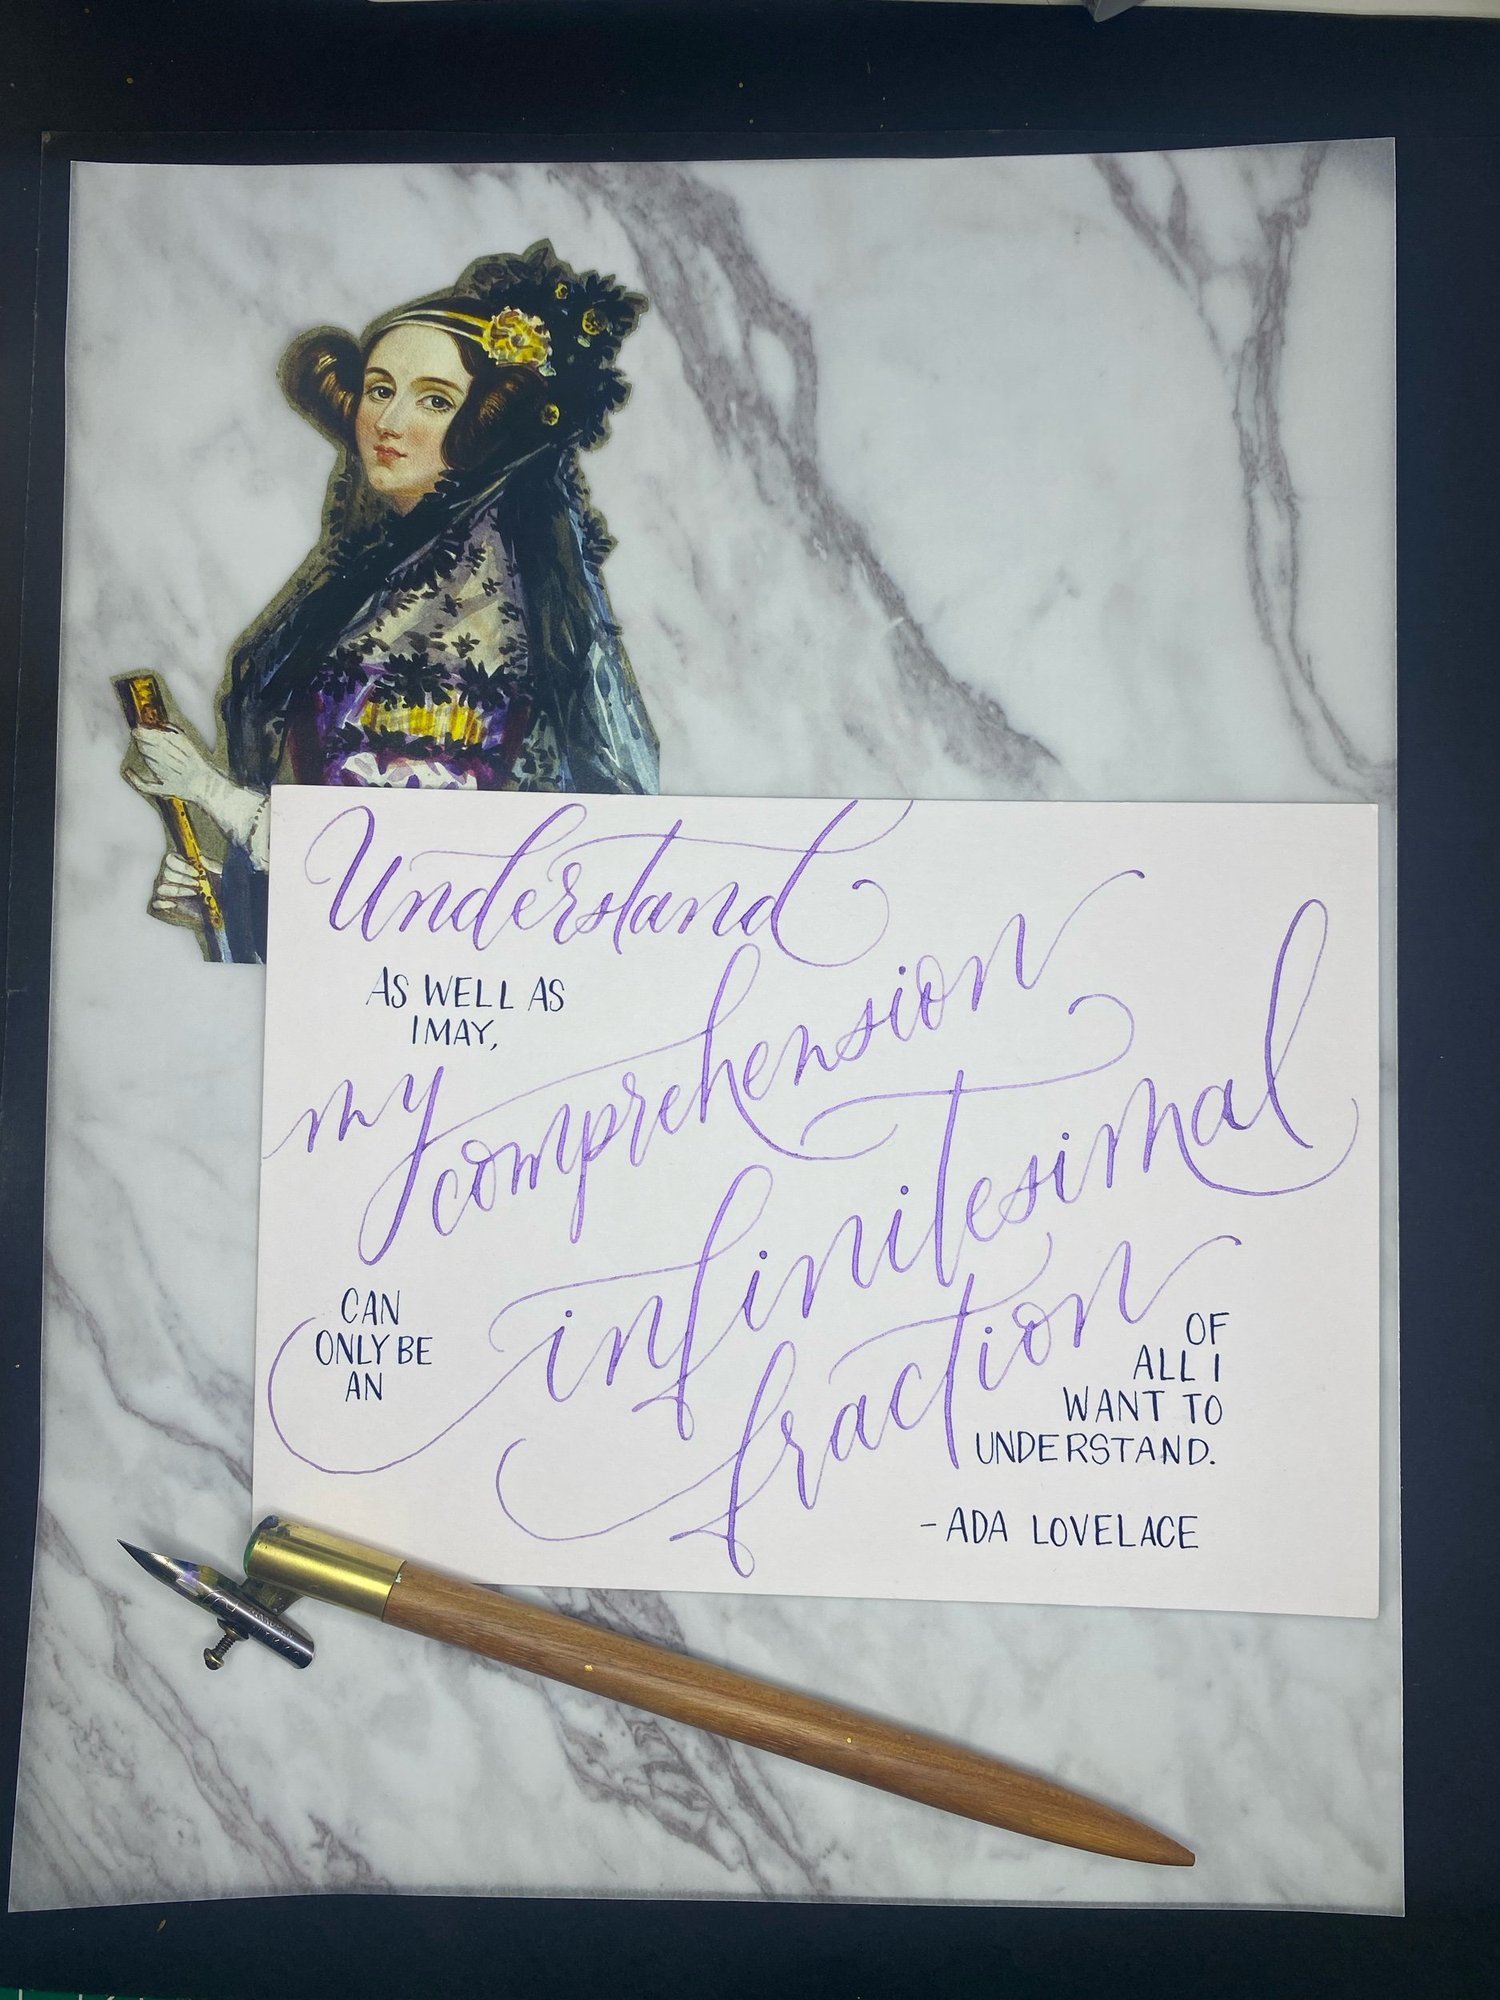 Understand
AS WELL AS
I MAY,
my
comprehension
CAN
ONLY BE
AN
infinitesimal
fraction
OF
ALL I
WANT TO
UNDERSTAND.
- ADA LOVELACE